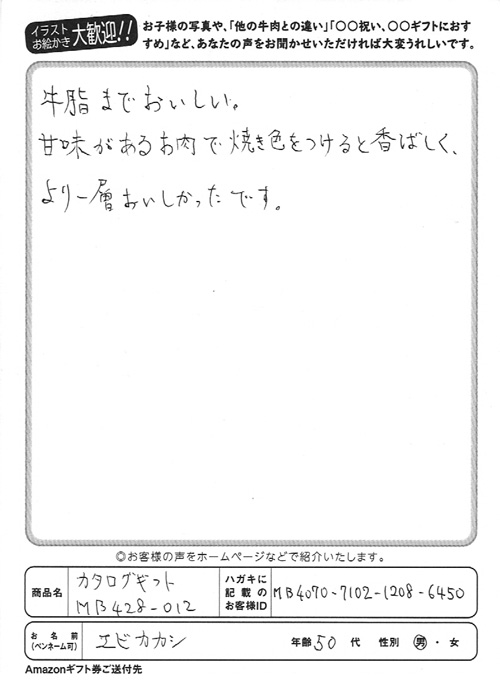 イラスト
お絵かき 大歓迎!!
お子様の写真や、「他の牛肉との違い」「〇〇祝い、〇〇ギフトにおす
すめ」など、あなたの声をお聞かせいただければ大変うれしいです。
牛脂までおいしい。
甘味があるお肉で焼き色をつけると香ばしく、
より一層おいしかったです。
◎お客様の声をホームページなどで紹介いたします。
商品名 カタログギフト
MB428-012
ハガキに
記載の
お客様ID
MB4070-7102-1208-6450
お名前
(ペンネーム可)
エビカカシ
年齢 50 代 性別 男・女
Amazonギフト券ご送付先